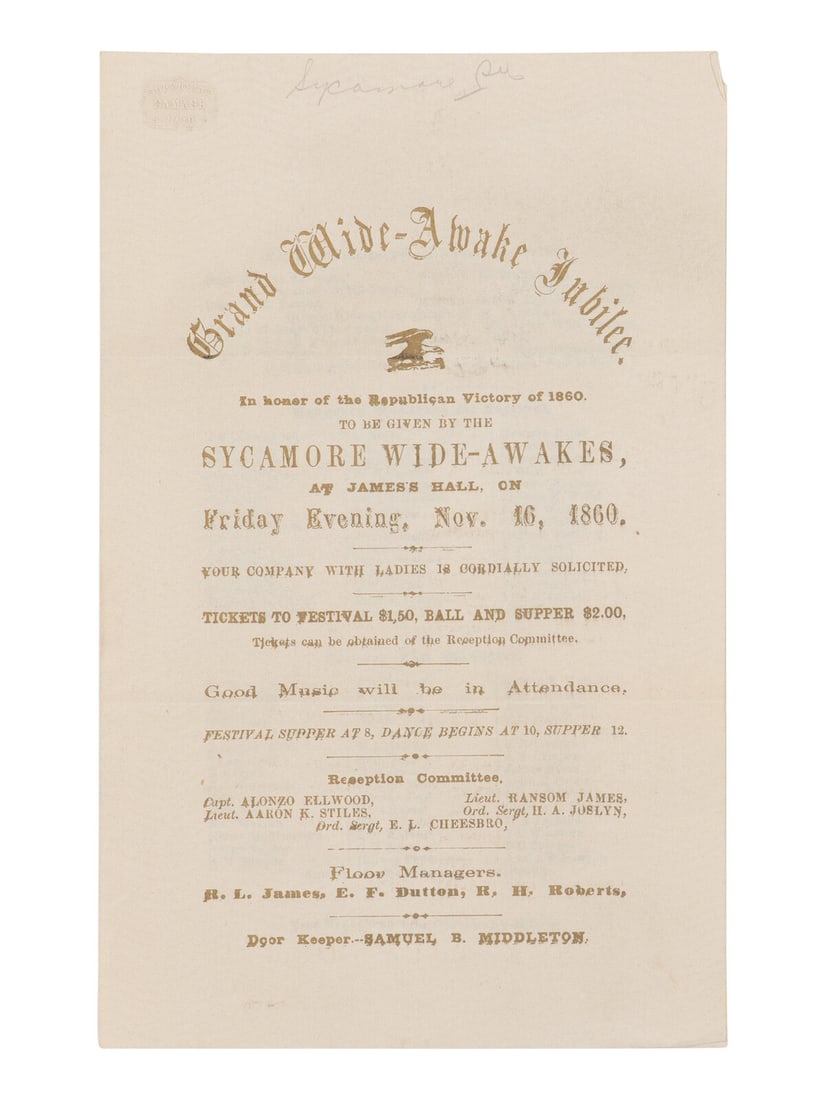 Sycamore
Grand Wide-Awake Jubilee.
In honor of the Republican Victory of 1860.
TO BE GIVEN BY THE
SYCAMORE WIDE-AWAKES,
AT JAMES'S HALL, ON
Friday Evening, Nov. 16, 1860.
YOUR COMPANY WITH LADIES IS CORDIALLY SOLICITED,
TICKETS TO FESTIVAL $1,50, BALL AND SUPPER $2.00,
Tickets can be obtained of the Reception Committee.
Good Music will be in Attendance,
FESTIVAL SUPPER AT 8, DANCE BEGINS AT 10, SUPPER 12.
Reception Committee,
Capt. ALONZO ELLWOOD, Lieut. RANSOM JAMES,
Lieut. AARON K. STILES, Ord. Sergt, H. A. JOSLYN,
Ord. Sergt, E. L. CHEESBRO,
Floor Managers.
R. L. James, E. F. Dutton, R. H. Roberts,
Door Keeper.--SAMUEL B. MIDDLETON,